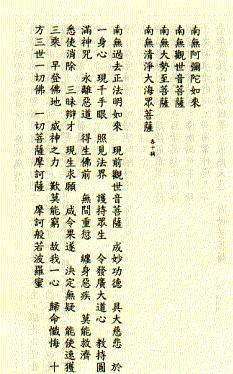 南無阿彌陀如來
南無觀世音菩薩
南無大勢至菩薩
南無清淨大海眾菩薩 各十稱
南無過去正法明如來 現前觀世音菩薩 成妙功德 具大慈悲 於
一身心 現千手眼 照見法界 護持眾生 令發廣大道心 教持圓
滿神咒 永離惡道 得生佛前 無間重愆 纏身惡疾 莫能救濟
悉使消除 三昧辯才 現生求願 咸令果遂 決定無疑 能使速獲
三乘 早登佛地 威神之力 歎莫能窮 故我一心 歸命懺悔 十
方三世一切佛 一切菩薩摩訶薩 摩訶般若波羅蜜